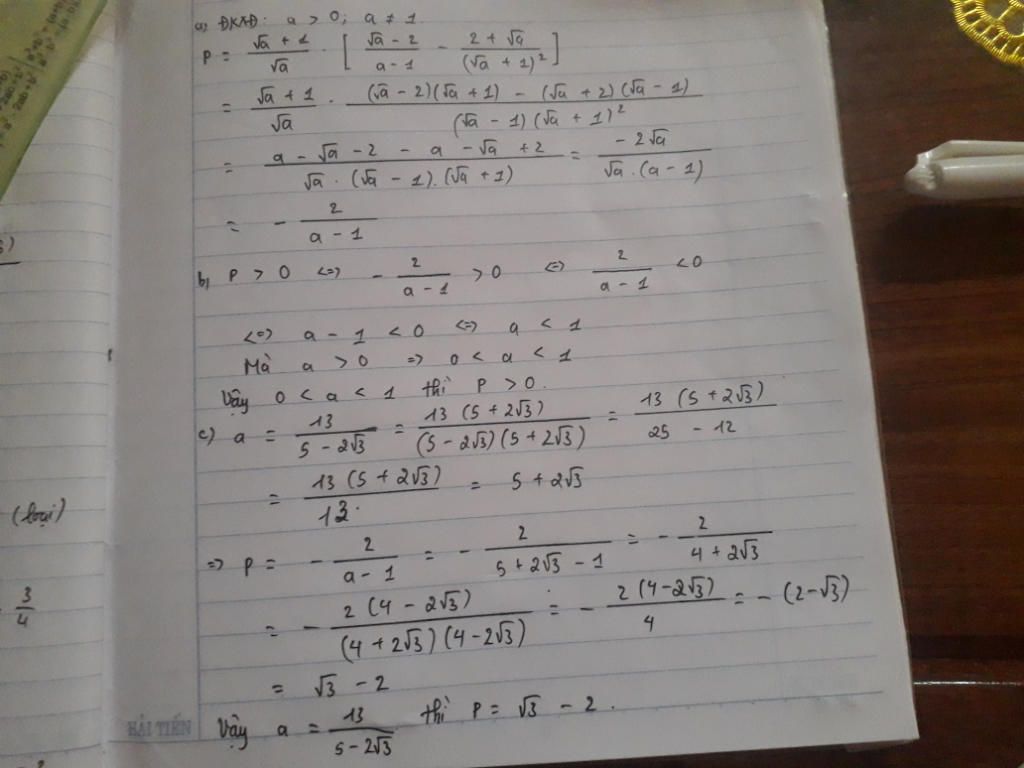 a, ĐKXĐ: a > 0; a ≠ 1.
P = (√a + 1)/√a · [ (√a - 2)/(a - 1) - (2 + √a)/(√a + 1)² ]
= (√a + 1)/√a · ((√a - 2)(√a + 1) - (√a + 2)(√a - 1))/((√a - 1)(√a + 1)²)
= (a - √a - 2 - a - √a + 2)/(√a · (√a - 1).(√a + 1)) = (- 2√a)/(√a.(a - 1))
= - 2/(a - 1)
b, P > 0 <=> - 2/(a - 1) > 0 <=> 2/(a - 1) < 0
<=> a - 1 < 0 <=> a < 1
Mà a > 0 => 0 < a < 1
Vậy 0 < a < 1 thì P > 0.
c) a = 13/(5 - 2√3) = (13 (5 + 2√3))/((5 - 2√3)(5 + 2√3)) = (13 (5 + 2√3))/(25 - 12)
= (13 (5 + 2√3))/13 = 5 + 2√3
=> P = - 2/(a - 1) = - 2/(5 + 2√3 - 1) = - 2/(4 + 2√3)
= - (2 (4 - 2√3))/((4 + 2√3)(4 - 2√3)) = - (2 (4 - 2√3))/4 = - (2 - √3)
= √3 - 2
Vậy a = 13/(5 - 2√3) thì P = √3 - 2.
(loại)
3/4
HẢI TIẾN